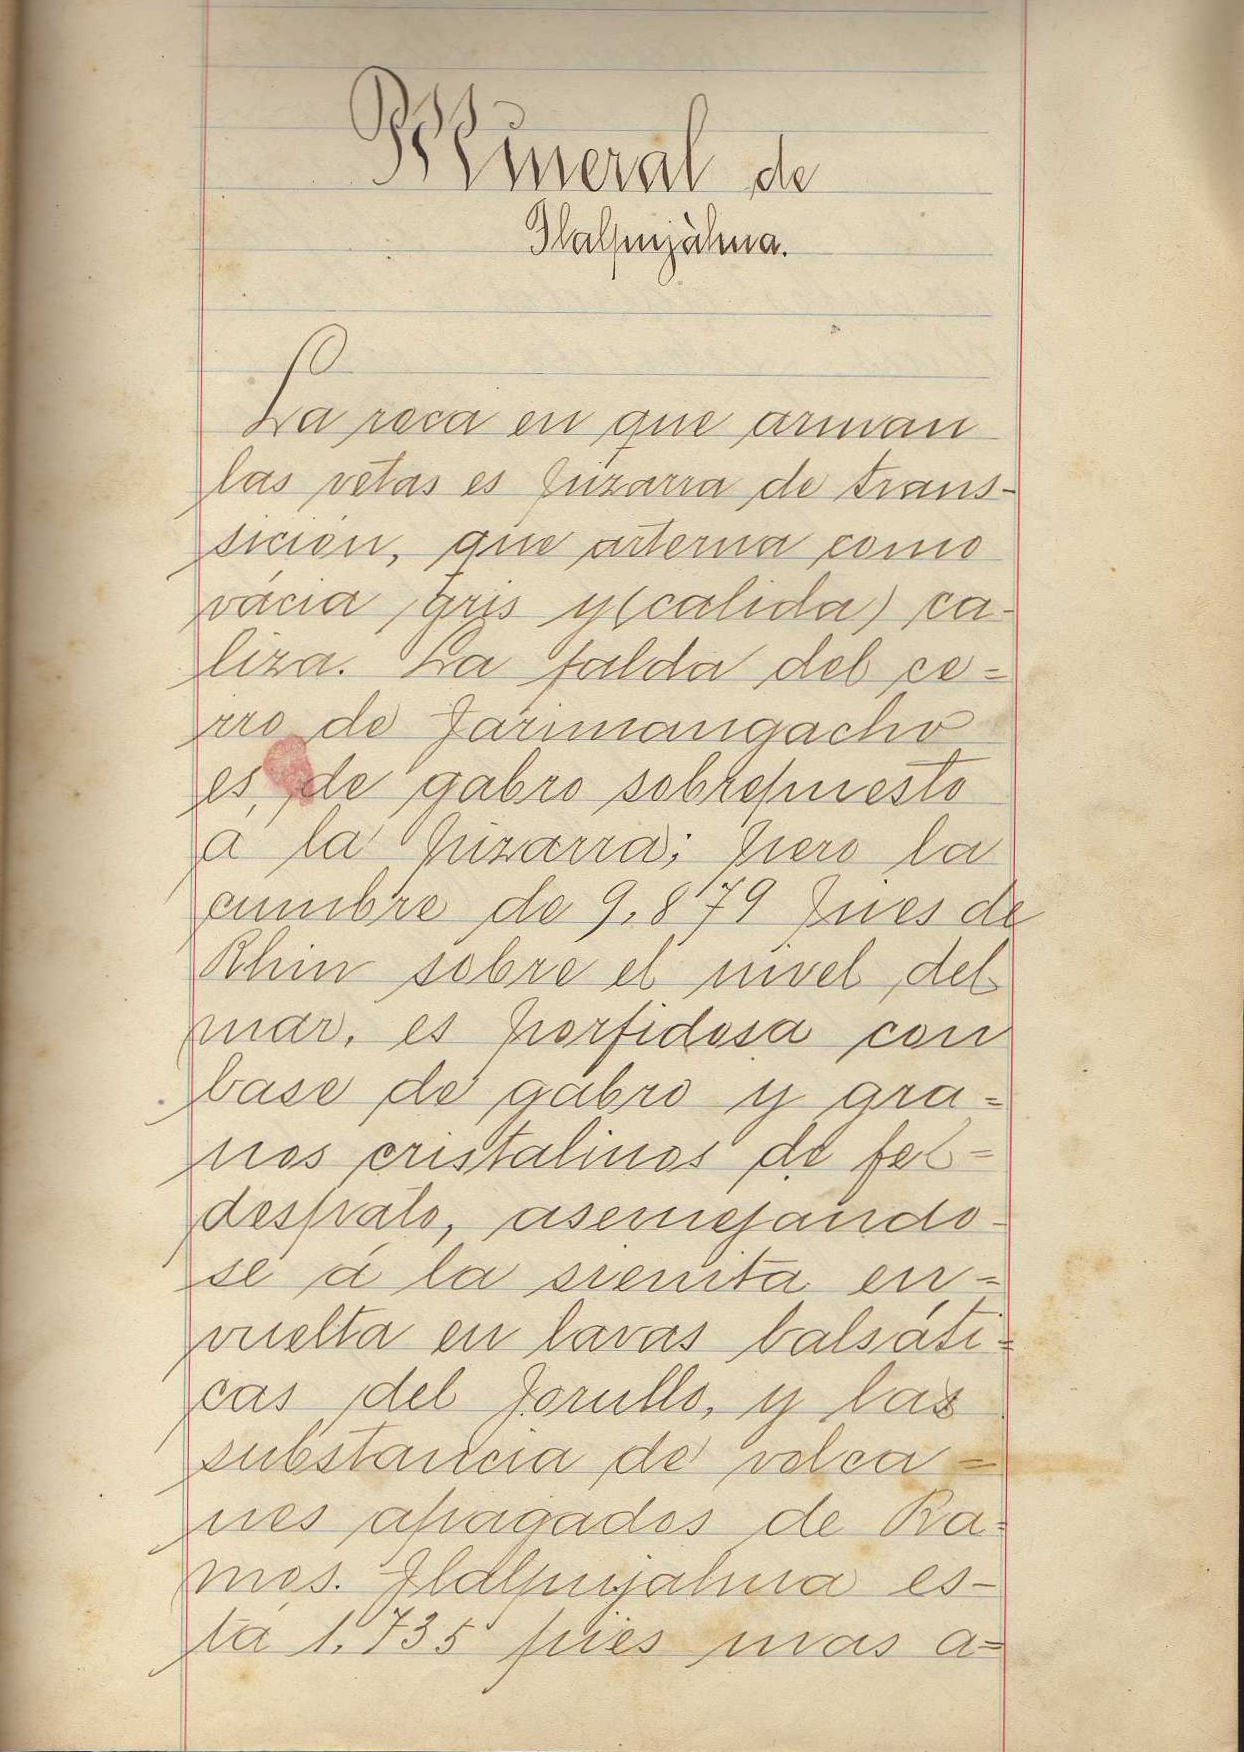 Mineral de
Tlalpujàhua.
La roca en que arman
las vetas es pizarra de trans-
sición, que arterna como
vácia gris y (calida) ca-
liza. La falda del ce=
rro de Jarimangacho
es, de gabro sobrepuesto
á la pizarra; pero la
cumbre de 9.879 pies de
Rhin sobre el nivel del
mar, es porfidosa con
base de gabro y gra=
nos cristalinos de fel=
despato, asemejando-
se á la sienita en=
vuelta en lavas balsáti=
cas del Jorullo, y las
substancia de volca=
nes apagados de Ra=
mos. Tlalpujahua es-
tá 1.735 pies mas a=